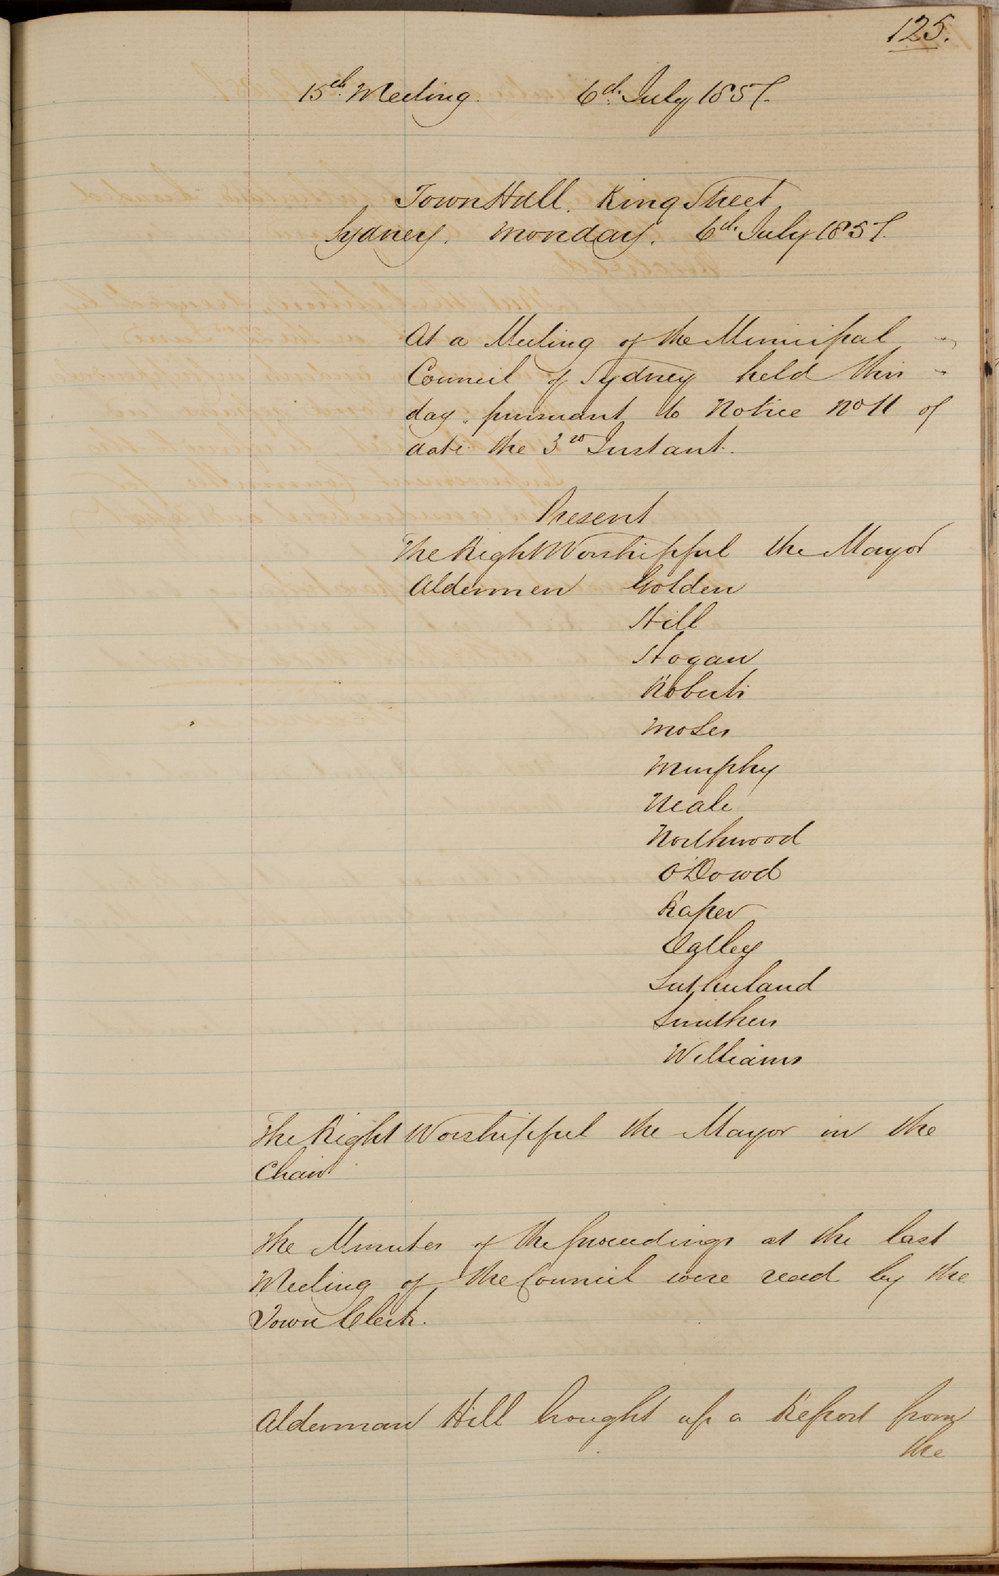 125.
15th Meeting. 6th July 1857.
Town Hall. King Street
Sydney. Monday. 6th July 1857.
At a Meeting of the Municipal
Council of Sydney held this
day pursuant to Notice No 11 of
date the 3rd Instant.
Present
The Right Worshipful the Mayor
Aldermen Golden
Hill
Hogan
Roberts
Moses
Murphy
Neale
Northwood
O'Dowd
Raper
Oatley
Sutherland
Smithers
Williams
The Right Worshipful the Mayor in the
Chair
The Minutes of the proceedings at the last
Meeting of the Council were read by the
Town Clerk.
Alderman Hill brought up a Report from
the